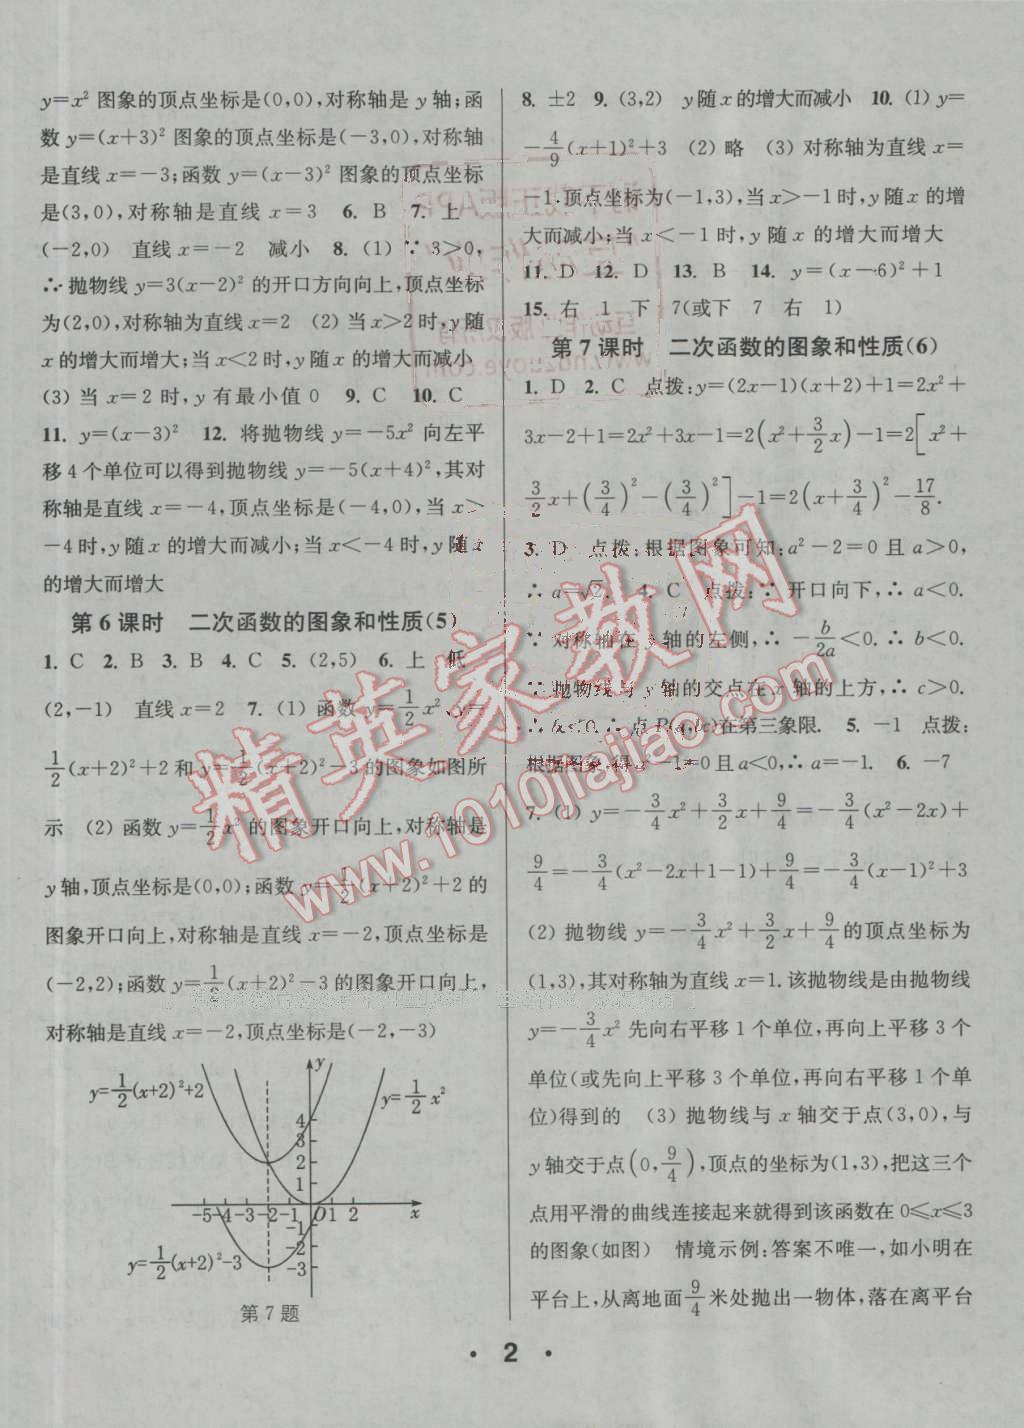 y=x² 图象的顶点坐标是(0,0),对称轴是 y 轴;函
数 y=(x+3)² 图象的顶点坐标是(-3,0),对称轴
是直线 x=-3;函数 y=(x-3)² 图象的顶点坐标
是(3,0),对称轴是直线 x=3 6. B 7. 上
(-2,0) 直线 x=-2 减小 8. (1) ∵ 3>0,
∴ 抛物线 y=3(x-2)² 的开口方向向上,顶点坐标
为(2,0),对称轴为直线 x=2 (2) 当 x>2 时,y 随
x 的增大而增大;当 x<2 时,y 随 x 的增大而减小
(3) 当 x=2 时,y 有最小值 0 9. C 10. C
11. y=(x-3)² 12. 将抛物线 y=-5x² 向左平
移 4 个单位可以得到抛物线 y=-5(x+4)²,其对
称轴是直线 x=-4,顶点坐标是(-4,0),当 x>
-4 时,y 随 x 的增大而减小;当 x<-4 时,y 随 x
的增大而增大
第 6 课时 二次函数的图象和性质(5)
1. C 2. B 3. B 4. C 5. (2,5) 6. 上 低
(2,-1) 直线 x=2 7. (1) 函数 y=1/2 x²、y=
1/2(x+2)²+2 和 y=1/2(x+2)²-3 的图象如图所
示 (2) 函数 y=1/2 x² 的图象开口向上,对称轴是
y 轴,顶点坐标是(0,0);函数 y=1/2(x+2)²+2 的
图象开口向上,对称轴是直线 x=-2,顶点坐标是
(-2,2);函数 y=1/2(x+2)²-3 的图象开口向上,
对称轴是直线 x=-2,顶点坐标是(-2,-3)
y
y=1/2(x+2)²+2
y=1/2 x²
4
3
2
1
-5 -4 -3 -2 -1 O 1 2 x
-1
-2
-3
y=1/2(x+2)²-3
第 7 题
8. ±2 9. (3,2) y 随 x 的增大而减小 10. (1) y=
-4/9(x+1)²+3 (2) 略 (3) 对称轴为直线 x=
-1,顶点坐标为(-1,3),当 x>-1 时,y 随 x 的增
大而减小;当 x<-1 时,y 随 x 的增大而增大
11. D 12. D 13. B 14. y=(x-6)²+1
15. 右 1 下 7(或下 7 右 1)
第 7 课时 二次函数的图象和性质(6)
1. D 2. C 点拨:y=(2x-1)(x+2)+1=2x²+
3x-2+1=2x²+3x-1=2(x²+3/2 x)-1=2[x²+
3/2 x+(3/4)²-(3/4)²]-1=2(x+3/4)²-17/8.
3. D 点拨:根据图象可知:a²-2=0 且 a>0,
∴ a=√2. 4. C 点拨:∵ 开口向下,∴ a<0.
∵ 对称轴在 y 轴的左侧,∴ -b/2a<0.∴ b<0.
∵ 抛物线与 y 轴的交点在 x 轴的上方,∴ c>0.
∴ bc<0.∴ 点 P(a,bc)在第三象限. 5. -1 点拨:
根据图象,得 a²-1=0 且 a<0,∴ a=-1. 6. -7
7. (1) y=-3/4 x²+3/2 x+9/4=-3/4(x²-2x)+
9/4=-3/4(x²-2x+1-1)+9/4=-3/4(x-1)²+3
(2) 抛物线 y=-3/4 x²+3/2 x+9/4 的顶点坐标为
(1,3),其对称轴为直线 x=1.该抛物线是由抛物线
y=-3/4 x² 先向右平移 1 个单位,再向上平移 3 个
单位(或先向上平移 3 个单位,再向右平移 1 个单
位)得到的 (3) 抛物线与 x 轴交于点(3,0),与
y轴交于点(0,9/4),顶点的坐标为(1,3),把这三个
点用平滑的曲线连接起来就得到该函数在 0≤x≤3
的图象(如图) 情境示例:答案不唯一,如小明在
平台上,从离地面 9/4 米处抛出一物体,落在离平台
· 2 ·
精英家教网
www.1010jiajiao.com